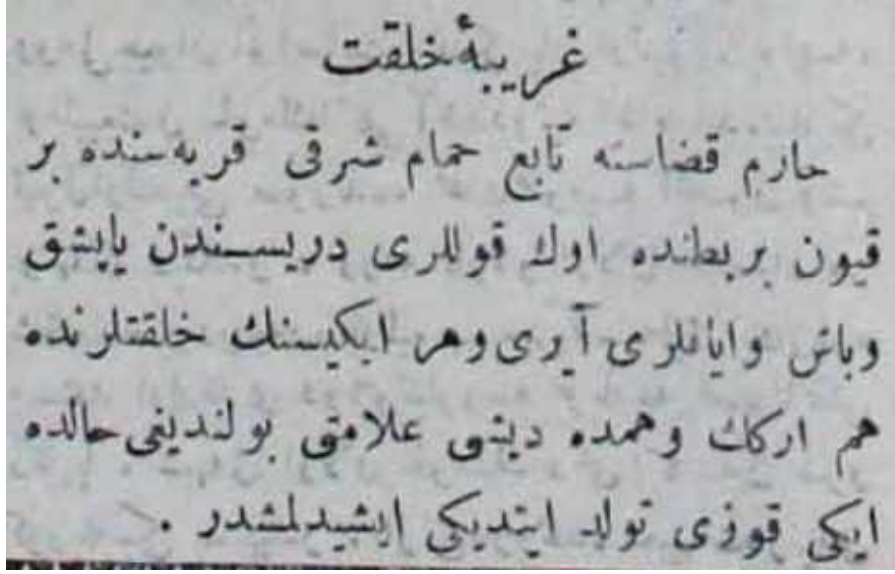 غریبۀ خلقت
حارم قضاسنه تابع حمام شرقی قریه‌سنده بر
قیون بر بطنده اوك قوللری دریسندن یاپیشق
وباش وایاقلری آیری وهر ایکیسنك خلقتلرنده
هم ارکك وهمده دیشی علامتی بولندیغی حالده
ایکی قوزی تولد ایتدیکی ایشیدلمشدر .